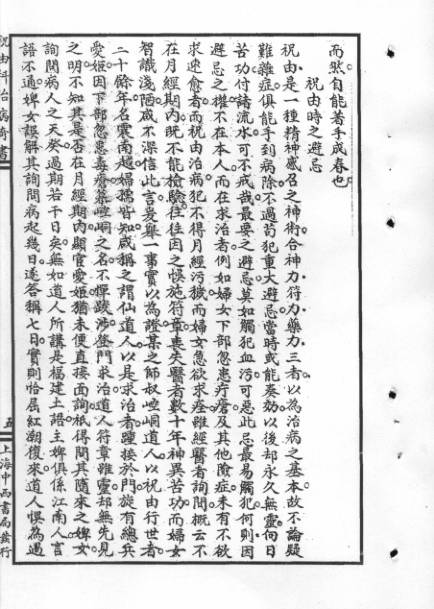 而然自能著手成春也。
祝由時之避忌
祝由是一種精神感召之神術合神力符力藥力三者以為治病之基本故不論疑
難雜症俱能手到病除不過苟犯重大避忌當時或能奏効以後却永久無靈向日
苦功付諸流水可不戒哉最要之避忌莫如觸犯血污可惡此忌最易觸犯何則因
避忌之權不在本人而在求治者例如婦女下部忽患疔瘡及其他險症未有不欲
求速愈者而祝由治病犯不得月經污穢而婦女急欲求痊雖經醫者詢問概云不
在月經期內既不能檢驗往往因之悞施符章喪失醫者數十年神異苦功而婦女
智識淺陋咸不深信此言爰舉一事實以為證某之師叔崆峒道人以祝由行世者
二十餘年名震南越婦孺皆知咸稱之謂仙道人以是求治者踵接於門旋有總兵
愛姬因下部忽患毒瘡慕崆峒之名不憚跋涉登門求治道人符章雖靈却無先見
之明不知其是否在月經期內顯官愛姬猶未便直接面詢祇得問其隨來之婢女
詢問病人之天癸過期若干日矣無如道人所講是福建土語主婢俱係江南人言
語不通婢女誤解其詢問病起幾日遂答稱七日實則恰屆紅潮復來道人悞為過
祝由科治病奇書
五
上海中西書局發行